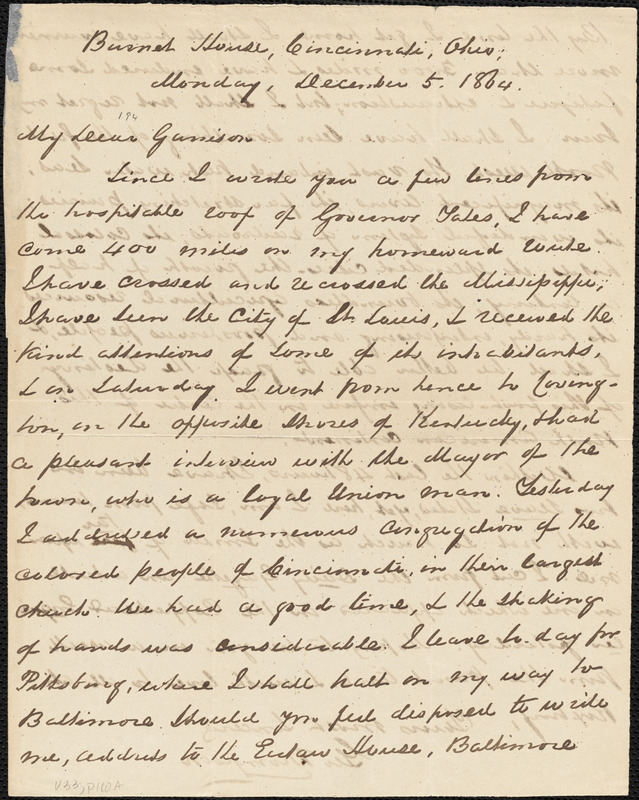 Burnet House, Cincinnati, Ohio,
Monday, December 5. 1864.
194
My Dear Garrison
Since I wrote you a few lines from
the hospitable roof of Governor Yates, I have
come 400 miles on my homeward route.
I have crossed and recrossed the Missipippi,
I have seen the City of St. Louis, & received the
kind attentions of some of its inhabitants,
& on Saturday I went from hence to Coving-
ton, on the opposite shores of Kentucky, & had
a pleasant interview with the Mayor of the
town, who is a loyal Union man. Yesterday
I addressed a numerous congregation of the
colored people of Cincinnati, in their largest
church. We had a good time, & the shaking
of hands was considerable. I leave to-day for
Pittsburg, where I shall halt on my way to
Baltimore Should you feel disposed to write
me, address to the Eutaw House, Baltimore
V33, p110A